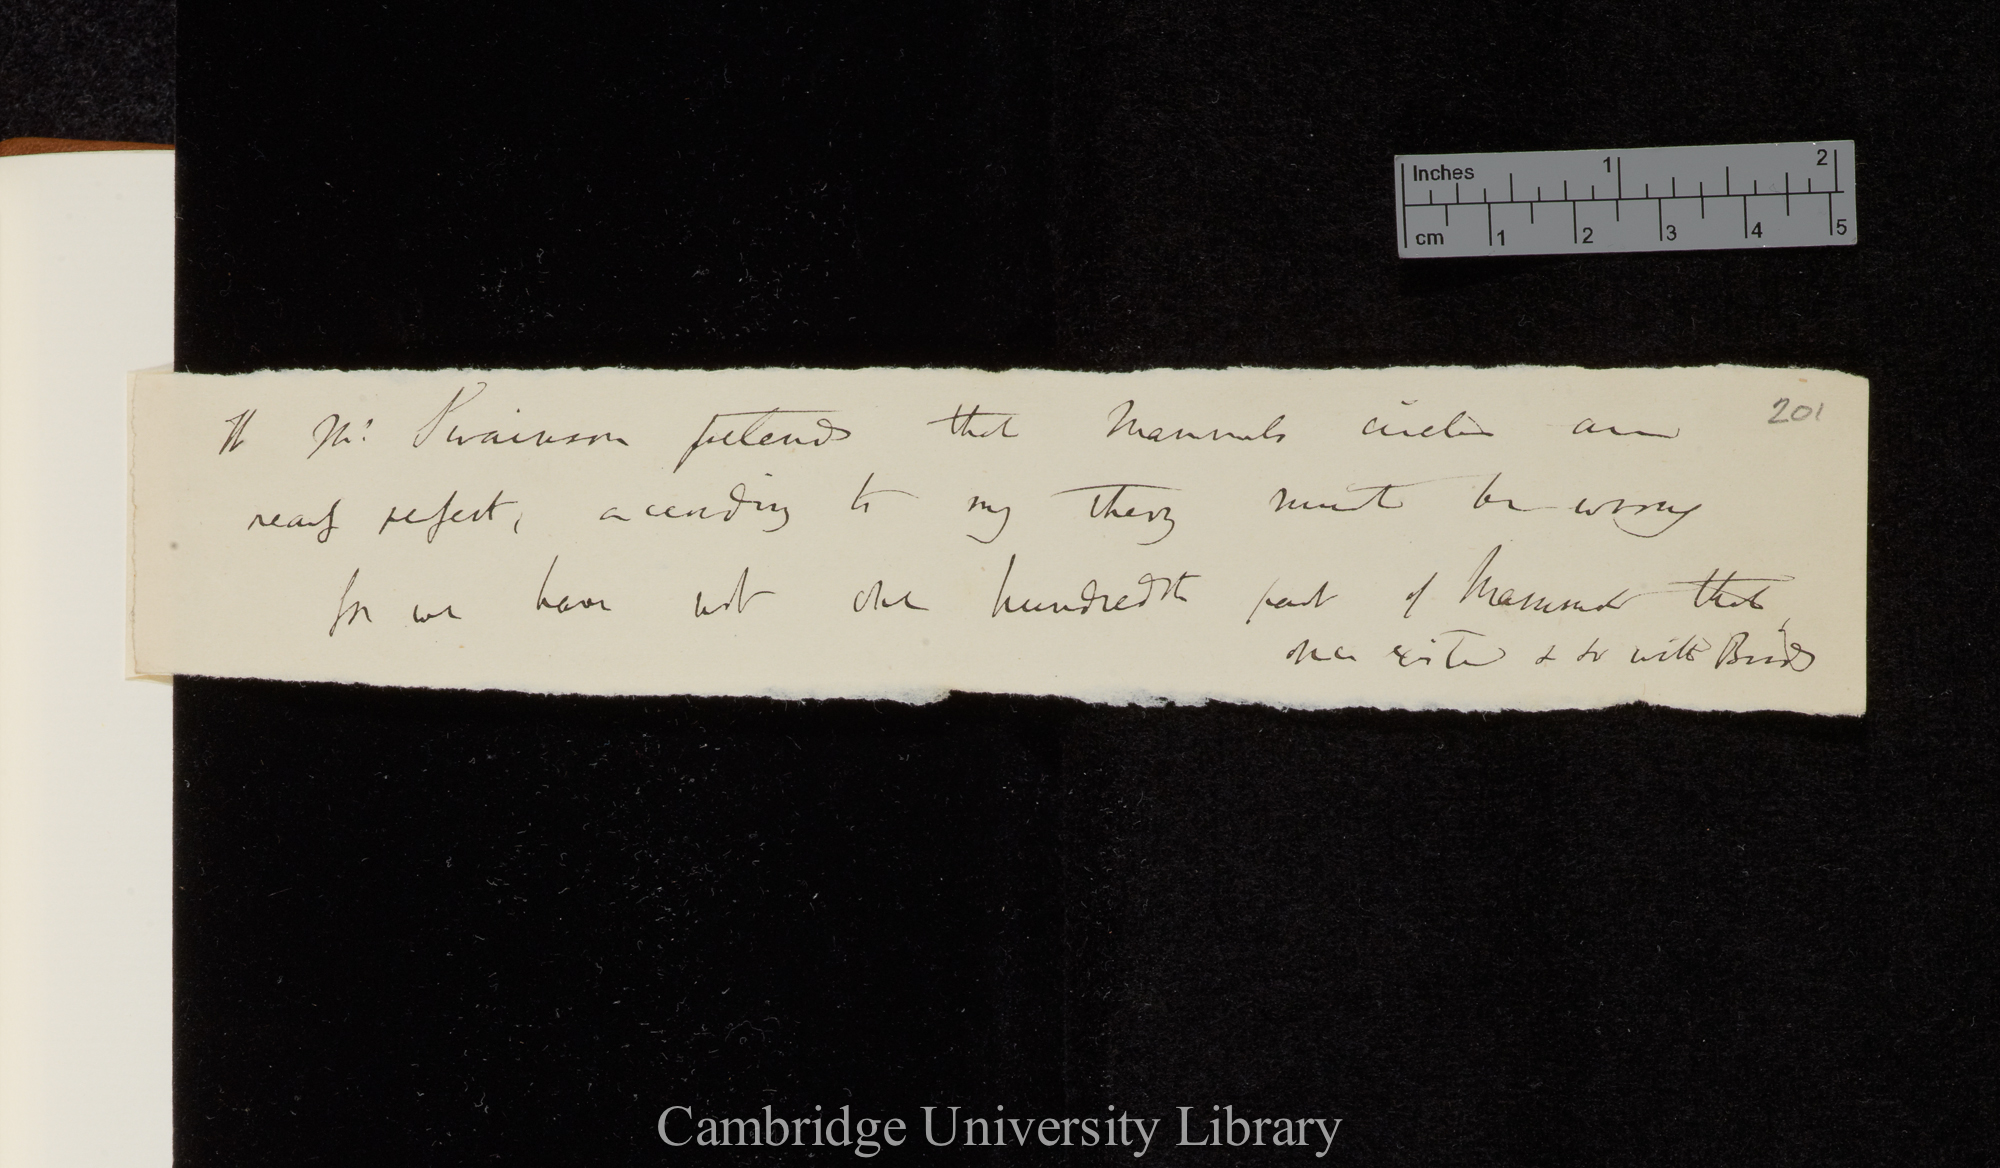 Inches 1 2
cm 1 2 3 4 5
201
If Mr. Swainson pretends that Mammals circles are
nearly perfect, according to my theory must be wrong
for we have not one hundredth part of Mammals that
once existed & so with Birds
Cambridge University Library